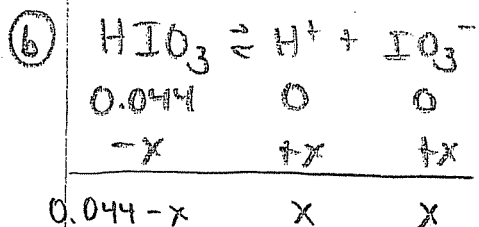 b HIO₃ ⇌ H⁺ + IO₃⁻
0.044 0 0
-x +x +x
0.044-x x x